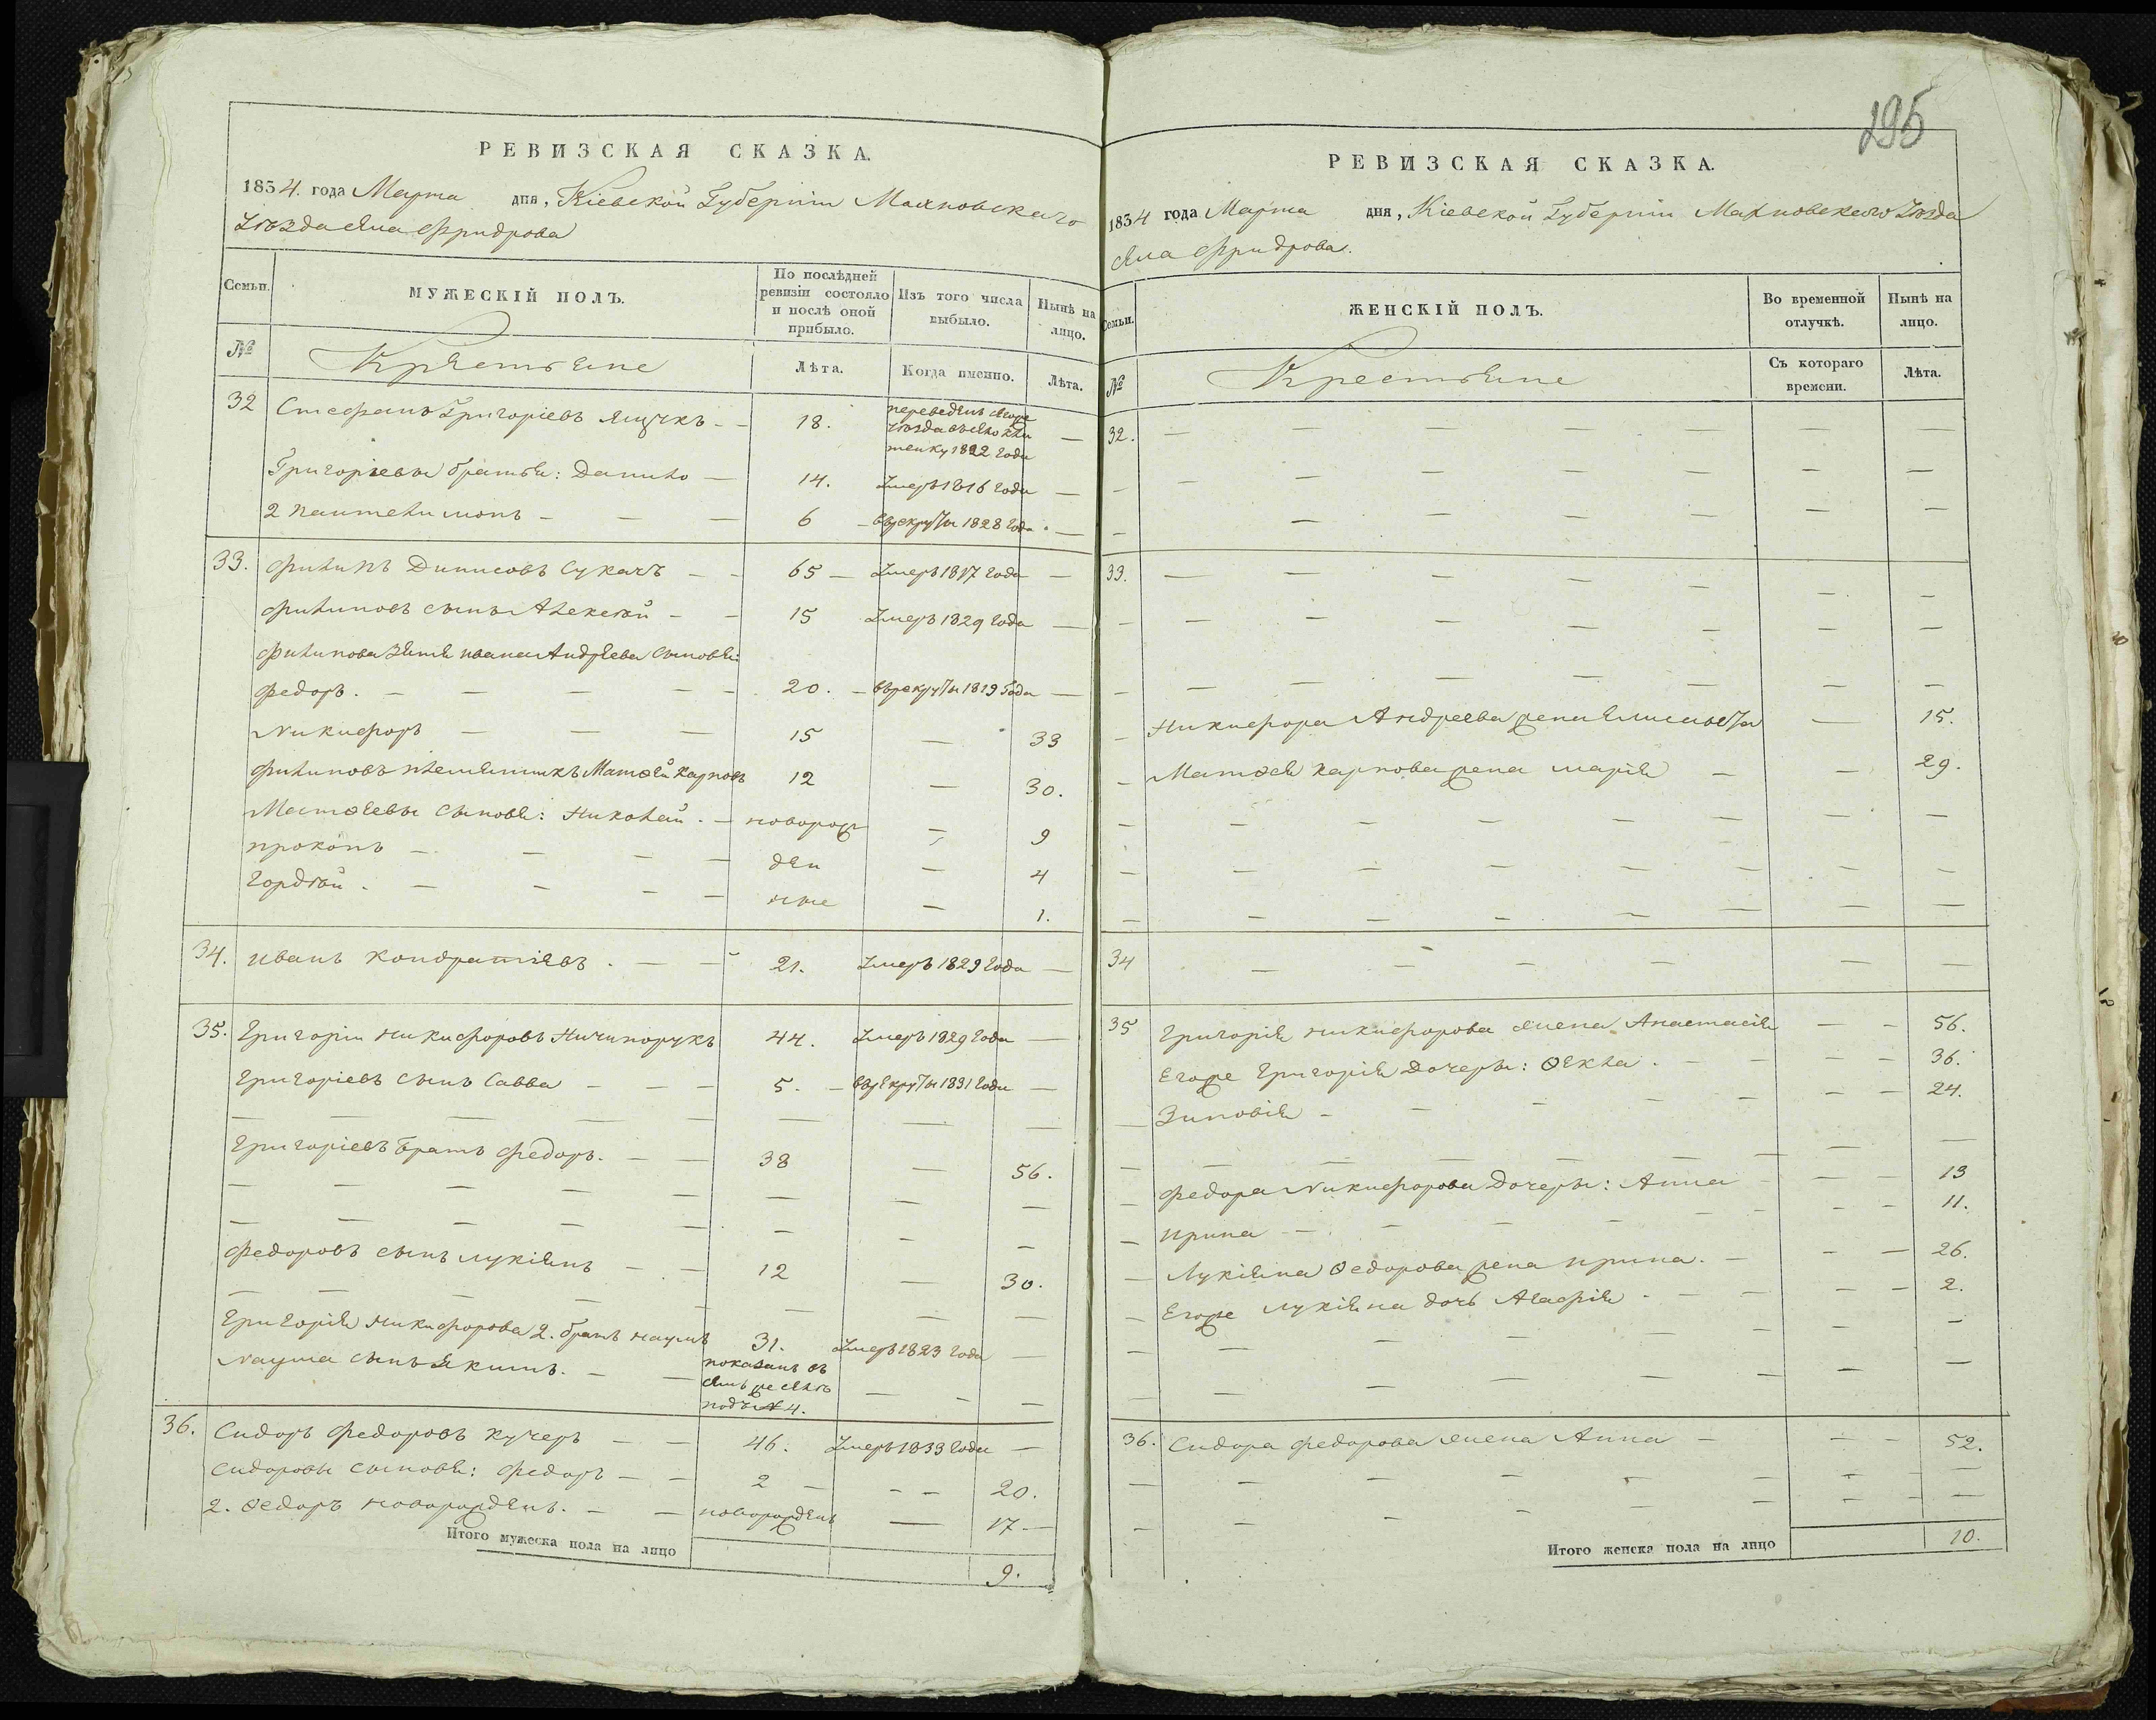 195
РЕВИЗСКАЯ СКАЗКА.
1834. года Марта дня, Кіевской Губерніи Махновскаго
Уѣзда села Фридрова
Семьи.
МУЖЕСКІЙ ПОЛЪ.
По послѣдней ревизіи состояло и послѣ оной прибыло.
Изъ того числа выбыло.
Нынѣ на лицо.
№
Крестьяне
Лѣта.
Когда именно.
Лѣта.
32 Стефанъ Григоріевъ — — 18. переведенъ тогоже —
уѣзда въ
1822 года
Григоріевы братья: Данило — 14. Умеръ 1816 года —
2 Пантелимонъ — — — 6 — въ рекруты 1828 года —
33. Филипъ Динисовъ Сукачъ — — 65 — Умеръ 1817 года —
Филиповъ сынъ Алексѣй — — 15 Умеръ 1829 года —
Филипова зятя Ивана Андреева сыновья:
Федоръ. — — — — — 20. — въ рекруты 1819 года —
Никифоръ — — — 15 — 33
Филиповъ племянникъ Матвѣй Карповъ 12 — 30.
Матвѣевы сыновья: Николай. — новорож — 9
Прокопъ — — — — ден — 4
Гордѣй. — — — — ные — 1.
34. Иванъ Кондратіевъ. — — 21. Умеръ 1829 года —
35. Григорій Никифоровъ Ничипорукъ 44. Умеръ 1829 года —
Григоріевъ сынъ Савва — — — 5. — въ рекруты 1831 года —
— — — — — — — — —
Григоріевъ братъ Федоръ. — — 38 — 56.
— — — — — — — —
— — — — — — — —
Федоровъ сынъ Лукіянъ — — 12 — 30.
— — — — — — — —
Григорія Никифорова 2. братъ Наумъ 31. Умеръ 1823 года —
Наума сынъ Якимъ. — — показанъ въ
семъ же селѣ — — —
подъ № 4.
36. Сидоръ Федоровъ Кучеръ — — 46. Умеръ 1833 года —
Сидоровы сыновья: Федоръ — — 2 — — — 20.
2. Федоръ новорожденъ. — — новорожденъ — 17 —
Итого мужеска пола на лицо 9.
РЕВИЗСКАЯ СКАЗКА.
1834 года Марта дня, Кіевской Губерніи Махновскаго Уѣзда
села Фридрова.
Семьи.
ЖЕНСКІЙ ПОЛЪ.
Во временной отлучкѣ.
Нынѣ на лицо.
№
Крестьяне
Съ котораго времени.
Лѣта.
32. — — — — — — —
— — — — — — — —
— — — — — — —
33. — — — — — — —
— — — — — — — —
— — — — — — — —
— Никифора Андреева жена Елисавета — 15.
— Матвѣя Карпова жена Марія — — 29.
— — — — — — — —
— — — — — — — —
— — — — — — — —
34 — — — — — — —
35 Григорія Никифорова жена Анастасія — — 56.
Егоже Григорія дочери: Ѳекла. — — — — 36.
— Зиновія — — — — — — — 24.
— — — — — — — — —
— Федора Никифорова дочери: Анна — — 13
— Ирина — — — — — — — — 11.
— Лукіяна Ѳедорова жена Ирина. — — — 26.
— Егоже Лукіяна дочь Агафія. — — — — 2.
— — — — — — — —
— — — — — — — —
36. Сидора Федорова жена Анна — — — 52.
— — — — — — — — — —
— — — — — — — — —
Итого женска пола на лицо 10.